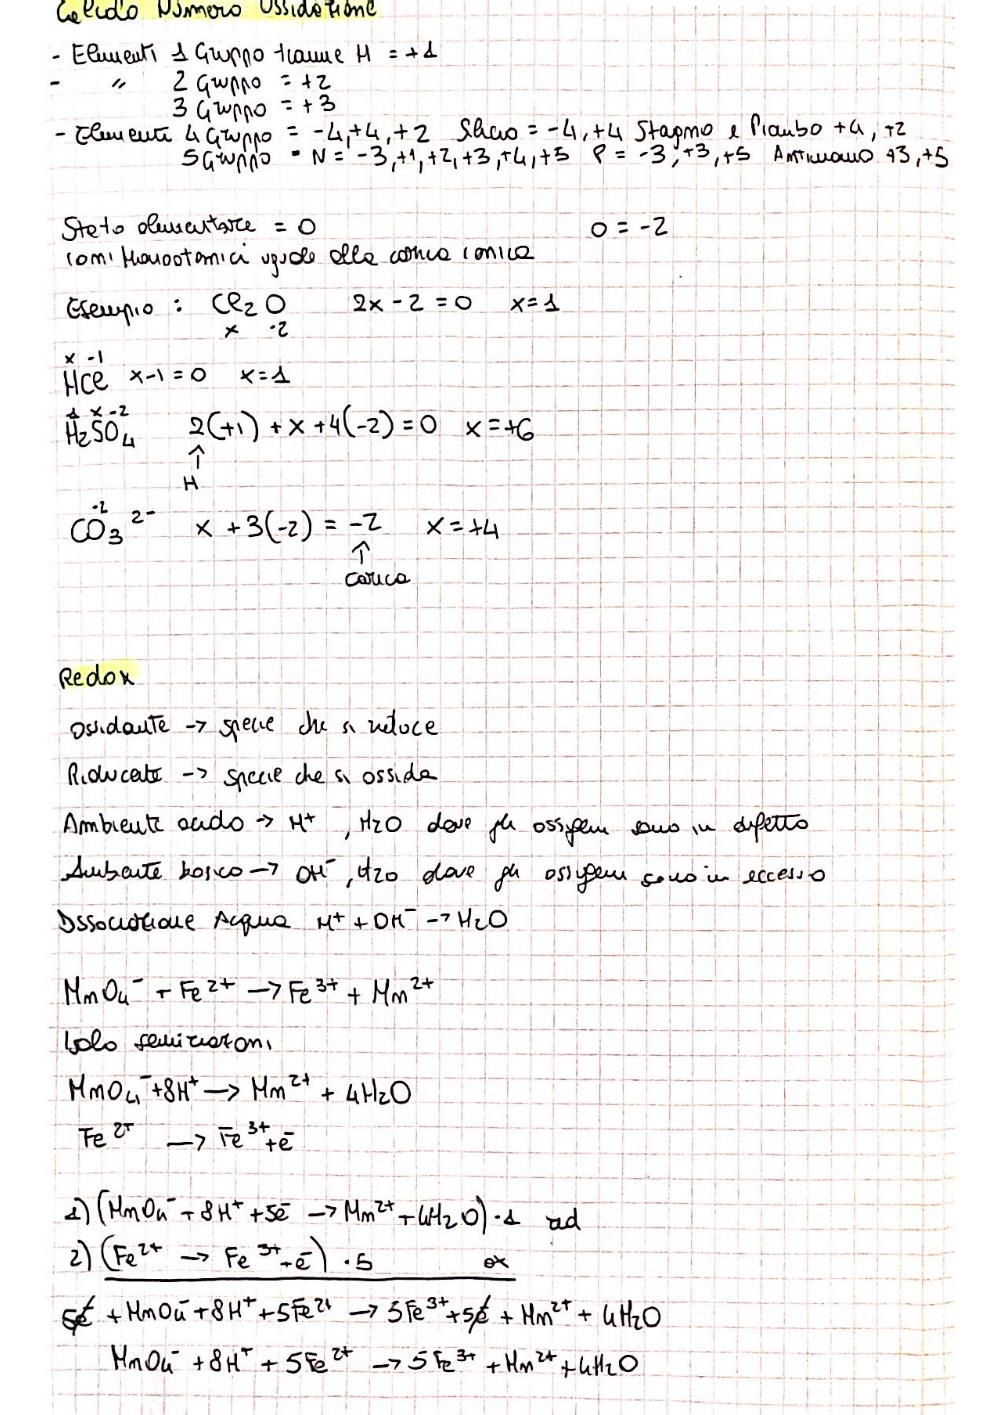 Calcolo Numero Ossidazione
- Elementi 1 Gruppo tranne H = +1
- " 2 Gruppo = +2
3 Gruppo = +3
- Elementi 4 Gruppo = -4,+4,+2 Silicio = -4,+4 Stagno e Piombo +4,+2
5 Gruppo - N = -3,+1,+2,+3,+4,+5 P = -3,+3,+5 Antimonio +3,+5
Stato elementare = 0 O = -2
ioni Monoatomici uguale alla carica ionica
Esempio : Cl2O 2x - 2 = 0 x = 1
x -2
x -1
HCl x - 1 = 0 x = 1
1 x -2
H2SO4 2(+1) + x + 4(-2) = 0 x = +6
↑
H
-2
CO3 2- x + 3(-2) = -2 x = +4
↑
carica
Redox
Ossidante -> specie che si riduce
Riducente -> specie che si ossida
Ambiente acido -> H+ , H2O dove gli ossigeni sono in difetto
Ambiente basico -> OH- , H2O dove gli ossigeni sono in eccesso
Dssociazione Acqua H+ + OH- -> H2O
MnO4- + Fe2+ -> Fe3+ + Mn2+
MnO4- + 8H+ -> Mn2+ + 4H2O
Fe2+ -> Fe3+ + e-
1) (MnO4- + 8H+ + 5e- -> Mn2+ + 4H2O) · 1 red
2) (Fe2+ -> Fe3+ + e-) · 5 ox
5e- + MnO4- + 8H+ + 5Fe2+ -> 5Fe3+ + 5e- + Mn2+ + 4H2O
MnO4- + 8H+ + 5Fe2+ -> 5Fe3+ + Mn2+ + 4H2O